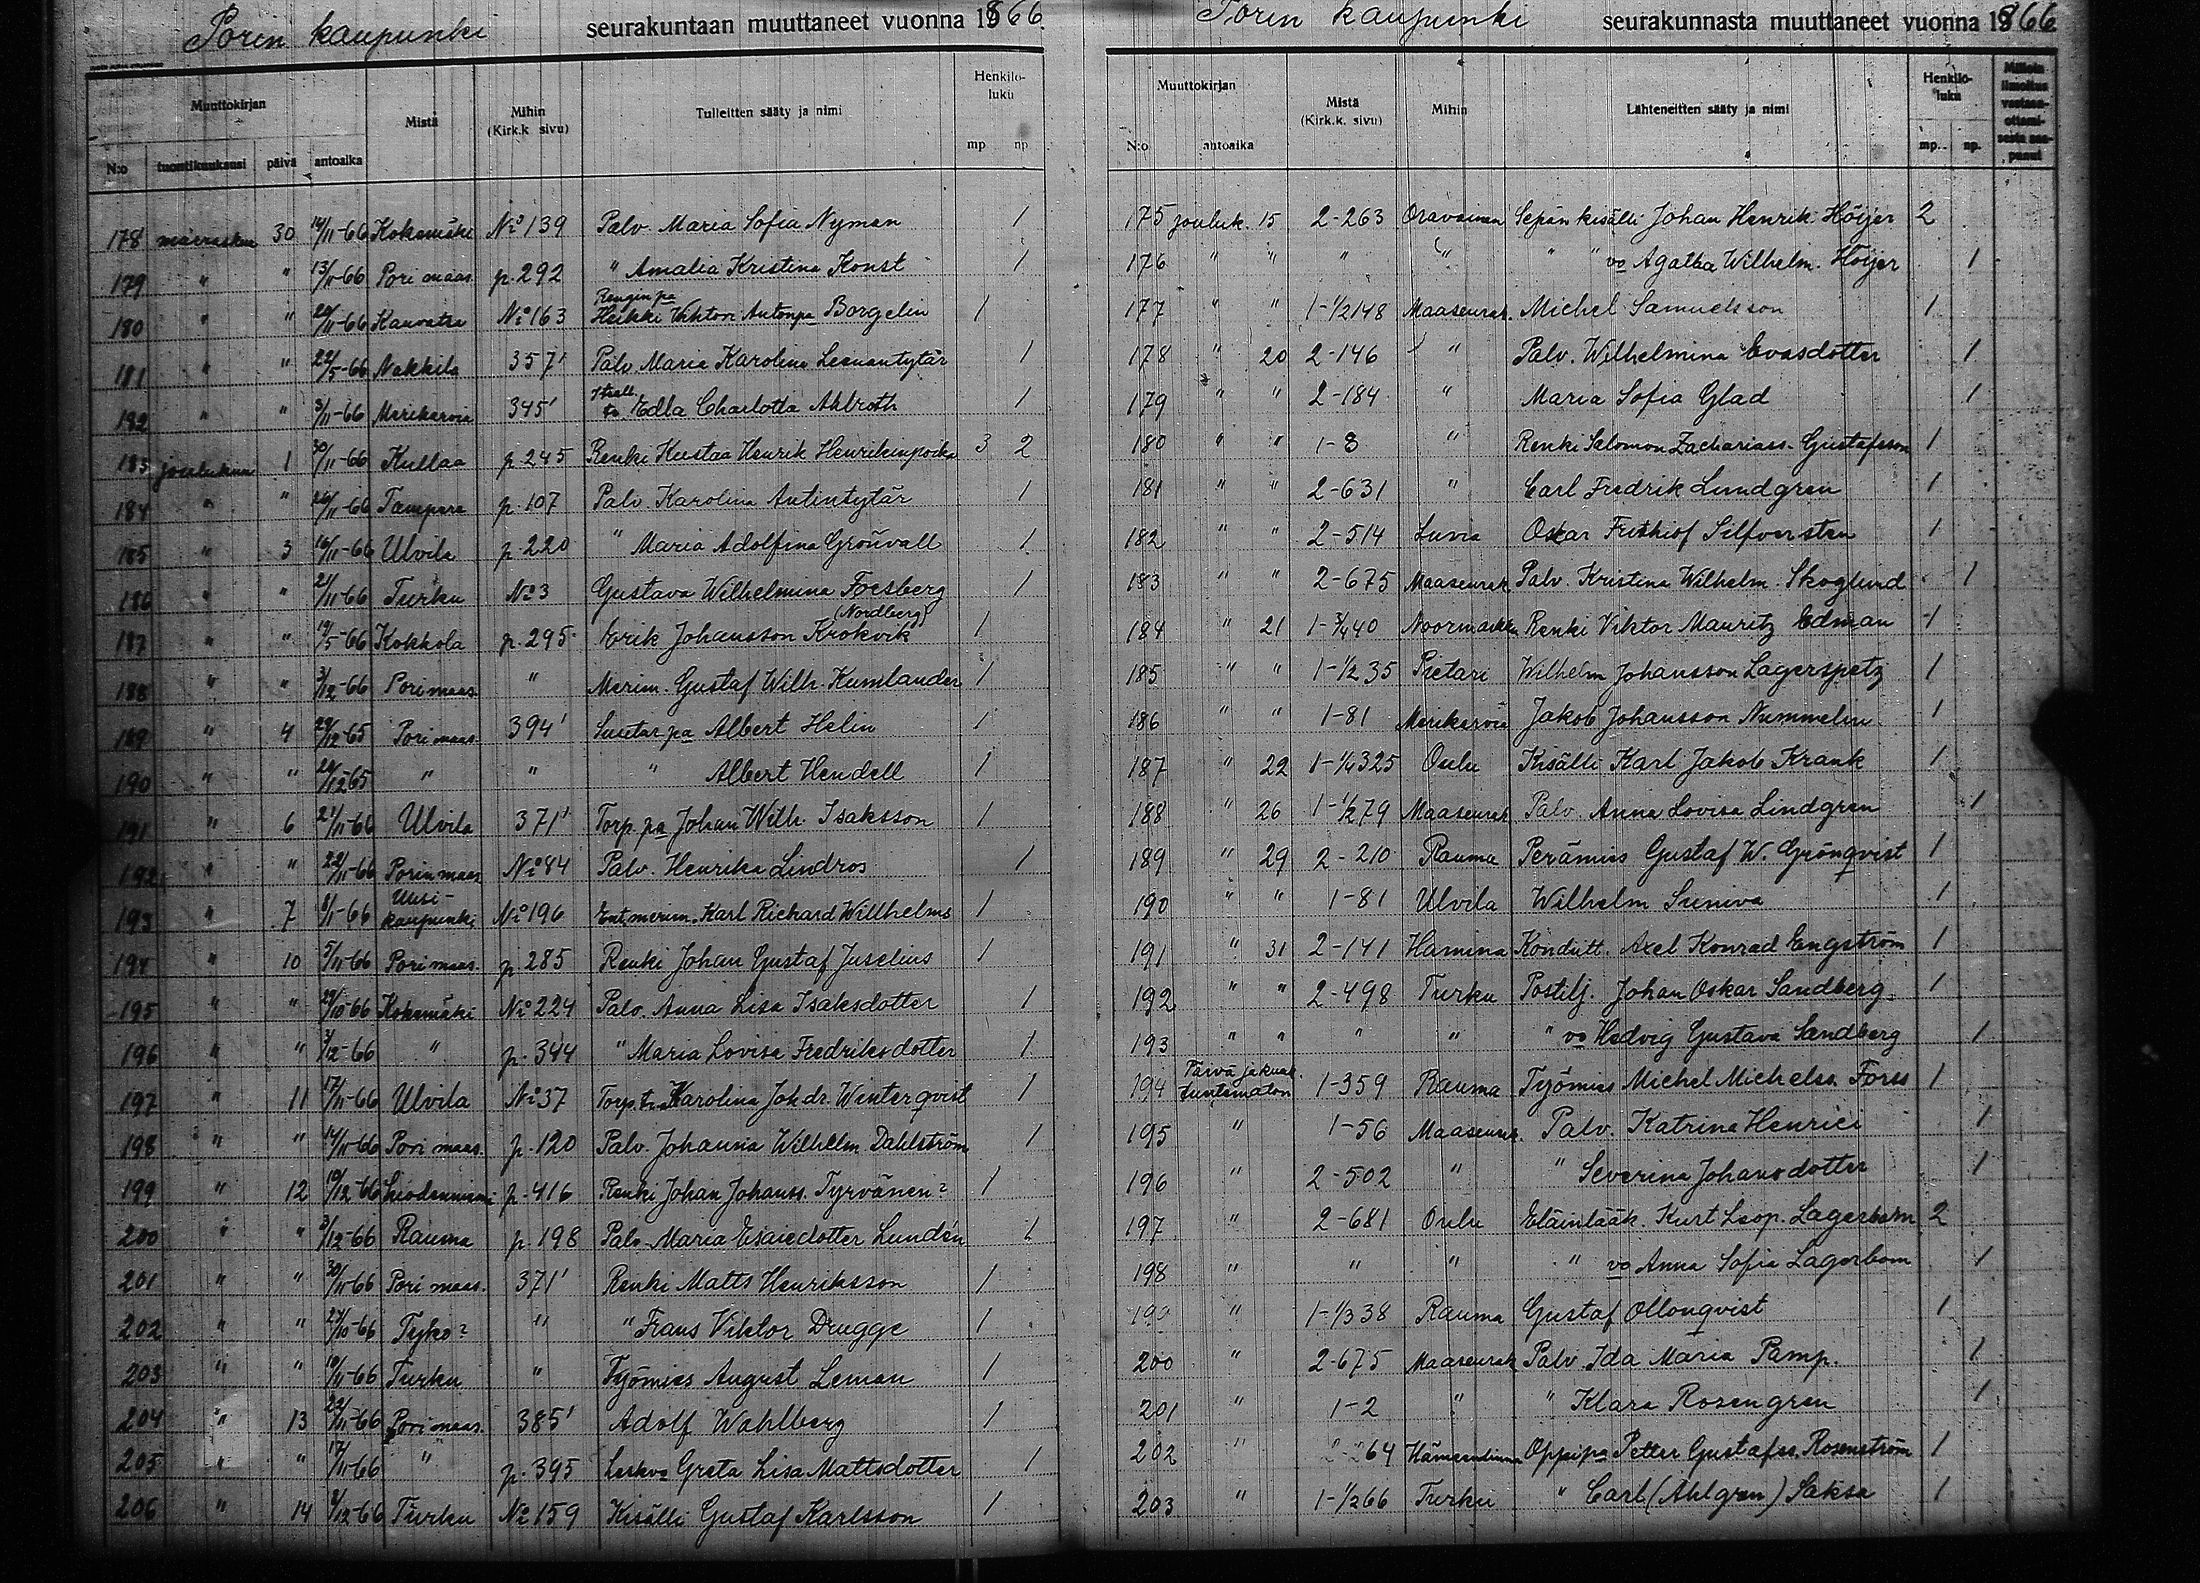 Porin kaupunki seurakuntaan muuttaneet vuonna 1866
Muuttokirjan
Mistä
Mihin (Kirk.k. sivu)
Tulleitten sääty ja nimi
Henkilöluku
N:o tuontikuukausi päivä antoaika mp np
178 marraskuu 30 14/11-66 Kokemäki No 139 Palv. Maria Sofia Nyman 1
179 " " 13/11-66 Pori maas. p. 292 " Amalia Kristina Konst 1
180 " " 20/11-66 Kauvatsa No 163 Rengin pa Heikki Viktor Antonpa Borgelin 1
181 " " 22/5-66 Nakkila 357' Palv Maria Karolina Leenantytär 1
182 " " 3/11-66 Merikarvia 345' Edla Charlotta Ahlroth 1
183 joulukuu 1 30/11-66 Kullaa p. 245 Renki Kustaa Henrik Henrikinpoika 3 2
184 " " 26/11-66 Tampere p. 107 Palv. Karolina Antintytär 1
185 " 3 16/11-66 Ulvila p. 220 " Maria Adolfina Grönvall 1
186 " " 21/11-66 Turku No 3 Gustava Wilhelmina Forsberg 1
187 " " 19/5-66 Kokkola p. 295 Erik Johansson Krokvik (Nordberg) 1
188 " " 3/12-66 Pori maas. " Merim. Gustaf Wilh. Kumlander 1
189 " 4 29/12-65 Pori maas. 394' Suutar pa Albert Helin 1
190 " " 29/12-65 " " " Albert Hendell 1
191 " 6 21/11-66 Ulvila 371' Torp. pa Johan Wilh. Isaksson 1
192 " " 22/11-66 Porin maas No 84 Palv. Henrika Lindros 1
193 " 7 8/11-66 Uusi-kaupunki No 196 Ent. merim. Karl Richard Willhelms 1
194 " 10 5/11-66 Pori maas. p 285 Renki Johan Gustaf Juselius 1
195 " " 29/10-66 Kokemäki No 224 Palv. Anna Lisa Isaksdotter 1
196 " " 3/12-66 " p. 344 " Maria Lovisa Fredriksdotter 1
197 " 11 17/11-66 Ulvila No 37 Torp. Karolina Joh.dr. Winterqvist 1
198 " " 14/11-66 Pori maas. p. 120 Palv. Johanna Wilhelm. Dahlström 1
199 " 12 10/12-66 p. 416 Renki Johan Johanss. Tyrvänen? 1
200 " " 3/12-66 Rauma p. 198 Palv. Maria Esaiedotter Lundén 1
201 " " 30/11-66 Pori maas. 371' Renki Matts Henriksson 1
202 " " 27/10-66 Tyko? " " Frans Viktor Drugge 1
203 " " 10/11-66 Turku " Työmies August Leman 1
204 " 13 22/11-66 Pori maas. 385' Adolf Wahlberg 1
205 " " 17/11-66 " p. 395 Leskva Greta Lisa Mattsdotter 1
206 " 14 8/12-66 Turku No 159 Kisälli Gustaf Karlsson 1
Porin kaupunki seurakunnasta muuttaneet vuonna 1866
Muuttokirjan
Mistä (Kirk.k. sivu)
Mihin
Lähteneitten sääty ja nimi
Henkilöluku
Milloin ilmoitus vastaanottamisesta saapunut
N:o antoaika mp. np.
175 jouluk. 15 2-263 Oravainen Sepän kisälli Johan Henrik Höijer 2
176 " " " " " " vo Agatha Wilhelm. Höijer 1
177 " " 1-1/2 148 Maaseurak. Michel Samuelsson 1
178 " 20 2-146 " Palv. Wilhelmina Evasdotter 1
179 " " 2-184 " Maria Sofia Glad 1
180 " " 1-3 " Renki Salomon Zachariass. Gustafsson 1
181 " " 2-631 " Carl Fredrik Lundgren 1
182 " " 2-514 Luvia Oskar Frithiof Silfversten 1
183 " " 2-675 Maaseurak Palv. Kristina Wilhelm. Skoglund 1
184 " 21 1-3/4 40 Noormarkku Renki Viktor Mauritz Edman 1
185 " " 1-1/2 35 Pietari Wilhelm Johansson Lagerspetz 1
186 " " 1-81 Merikarvia Jakob Johansson Nummelin 1
187 " 22 1-1/4 325 Oulu Kisälli Karl Jakob Krank 1
188 " 26 1-1/2 79 Maaseurak Palv. Anna Lovisa Lindgren 1
189 " 29 2-210 Rauma Perämies Gustaf W. Grönqvist 1
190 " " 1-81 Ulvila Wilhelm Suniva 1
191 " 31 2-141 Hamina Kondutt. Axel Konrad Engström 1
192 " " 2-498 Turku Postilj. Johan Oskar Sandberg 1
193 " " " " " vo Hedvig Gustava Sandberg 1
194 Päivä ja kuuk. tuntematon 1-359 Rauma Työmies Michel Michelss. Forss 1
195 " 1-56 Maaseurak. Palv. Katrina Henrici 1
196 " 2-502 " " Severina Johansdotter 1
197 " 2-681 Oulu Eläinlääk. Kurt Leop. Lagerbom 2
198 " " " " vo Anna Sofia Lagerbom 1
199 " 1-1/3 38 Rauma Gustaf Ollonqvist 1
200 " 2-675 Maaseurak Palv. Ida Maria Pamp. 1
201 " 1-2 " " Klara Rosengren 1
202 " 64 Hämeenlinna Oppipa Petter Gustafss. Rosenström 1
203 " 1-1/2 66 Turku " Carl (Ahlgren) Saksa 1